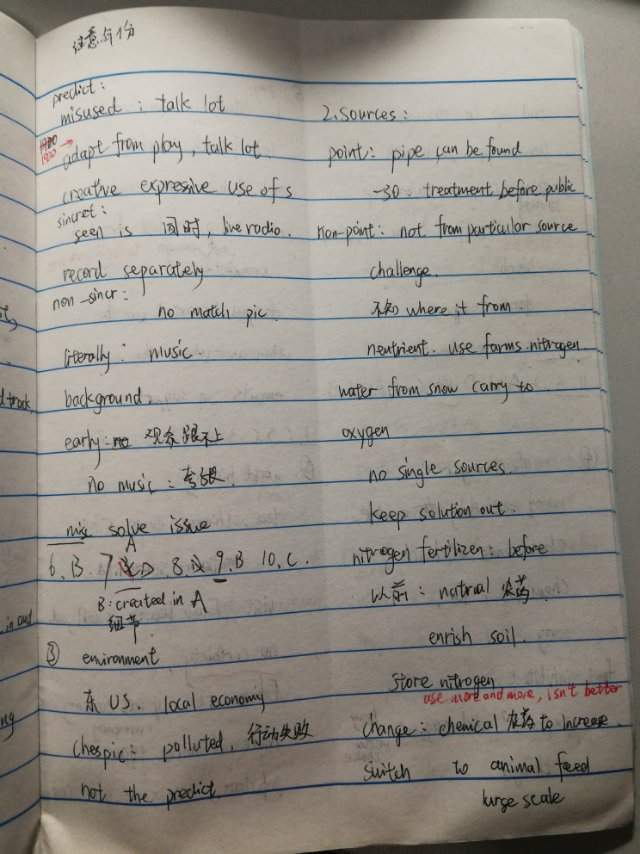 注意年份
predict:
misused : talk lot
1980
1920 →
adapt from play, talk lot.
creative expressive use of s
sincret:
seen is 同时, live radio.
record separately
non-sincr:
no match pic.
literally: music.
background.
early: no 观众跟不上
no music : 夸张.
misc solve issue
A
6. B 7. D 8. A 9. B 10. C.
B: created in A
细节
③ environment
东 US. local economy
chespic: polluted, 行动失败
not the predict.
2. Sources:
point: pipe can be found
-30: treatment before public
non-point: not from particular source
challenge.
不知 where it from.
neutrient. use farms. nitrogen
water from snow carry to
oxygen
no single sources.
keep solution out.
nitrogen fertilizen: before
以前: natural 农药
enrish soil.
store nitrogen
use more and more, isn't better
change: chemical 农药 to increase.
switch to animal feed
large scale
d track,
in and
ng